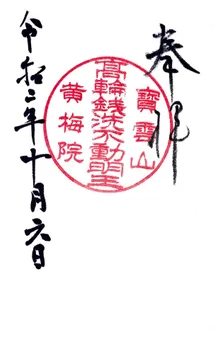 奉拝
寳雲山
高輪銭洗不動明王
黄梅院
令和二年十月六日